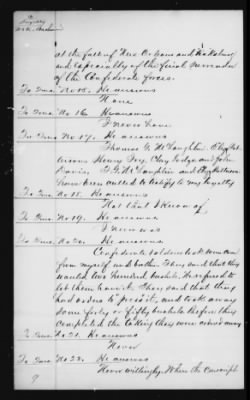 at the fall of New Orleans and Vicksburg
and especially of the final surrender
of the Confederate forces.
To Ques. No 15. He answers
None
To Ques. No 16. He answers
I never have
To Ques. No 17. He answers
Thomas G. McLaughlin
Henry Ivy, Clay Lodge and John
T. G. McLaughlin and
have been called to testify to my loyalty
To Ques. No 18. He answers
Not that I know of
To Ques. No 19. He answers
I never was
To Ques. No 20. He answers
Confederate soldiers took some corn
from myself and brother. They said that they
wanted two hundred bushels. We refused to
let them have it. They said that they
had orders to press it, and took away
some forty or fifty bushels. Before they
completed the taking they were ordered away
To Ques. No 21. He answers
Never
To Ques. No 22. He answers
Never willingly. When the conscript
9